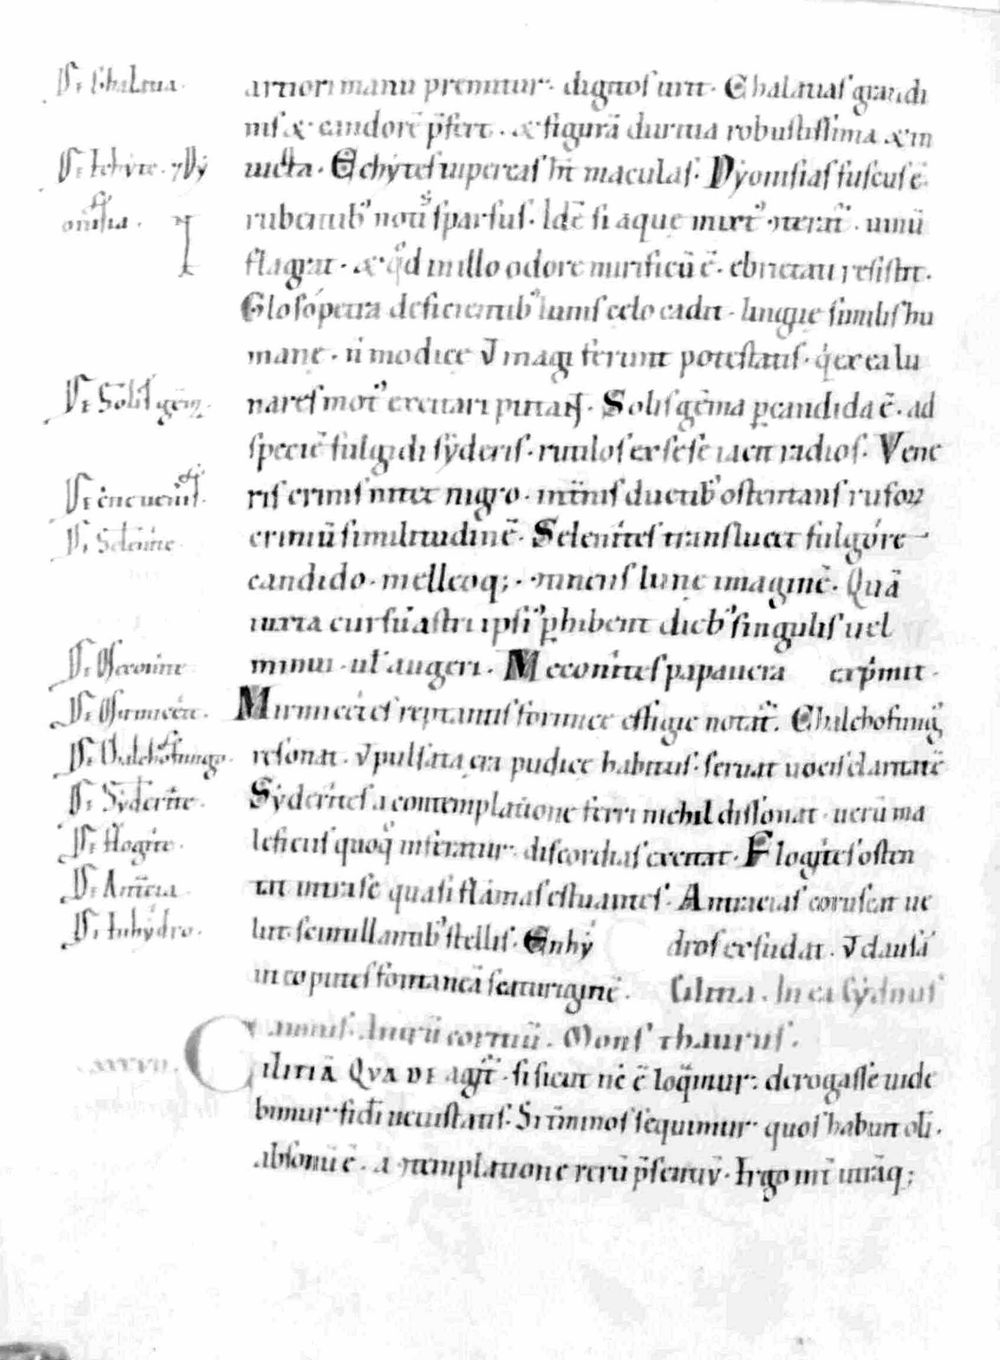 De Chalazia.
artiori manu premitur. dignoscunt. Chalazias grandi
nis & candorē p̄fert. & figurā duritia robustissima & in
De Echite. 7 Dy
uicta. Echytes uipereas hīt maculas. Dyonisias fuscus ē.
onisia.
rubentib' notis sparsus. Idē si aque mixt' teratr̄. uinū
flagrat. & qd̊ in illo odore mirificū ē. ebrietati resistit.
Glosopetra deficientib' lunis celo cadit. lingue similis hu
mane. n̄ modice ut magi ferunt potestatis. q̇ ex ea lu
De Solis gēm.
nares mot' excitari putant. Solis gēma p̱candida ē. ad
speciē fulgidi syderis. rutilos ex sese iacit radios. Vene
De c̄ne uen̄is.
ris crinis nitet nigro. int̄nis ductib' ostentans rufoꝝ
De Selenite.
criniū similitudinē. Selenites translucet fulgore
candido. melleoq;. continens lune imaginē. Quā
iuxta cursū astri ipsi' p̱hibent dieb' singulis uel
De Meconite
minui. ul' augeri. Meconites papauera exp̄mit.
De Mirmicete.
Mirmicetes reptantis formice effigie notatr̄. Chalchofung'
De Chalchofungo.
resonat. ut pulsata era pudice habitus. seruat uocis claritatē
De Syderite.
Syderites a contemplatione ferri nichil dissonat. uerū ma
De flogite.
leficus quoquo inferatur. discordias excitat. Flogites osten
De Antracia.
tat intra se quasi flāmas estuantes. Antracias coruscat ue
De Enhydro.
lut scintillantib' stellis. Enhy dros exsudat. ut clausā
in eo putes fontaneā scaturiginē. Cilicia. In ea Cydnus
amnis. Antrū coriciū. Mons thaurus.
CILITIĀ QVA DE agitr̄. si sicut nc̄ ē loq̄mur: derogasse uide
bimur fidei uetustatis. Si t̄minos sequimur quos habuit oli.
absonū ē. a contemplatione rerū p̄sentiū. Ergo int̄ utrāq;